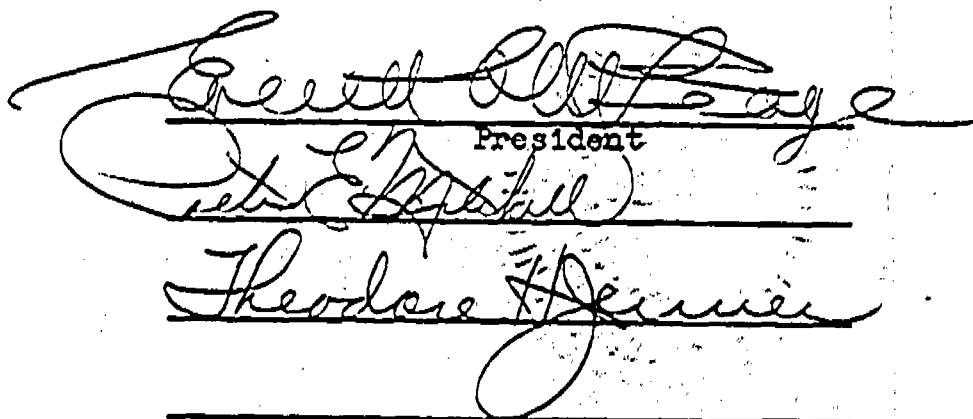 Everett Page
President
Peter E Marshall
Theodore H